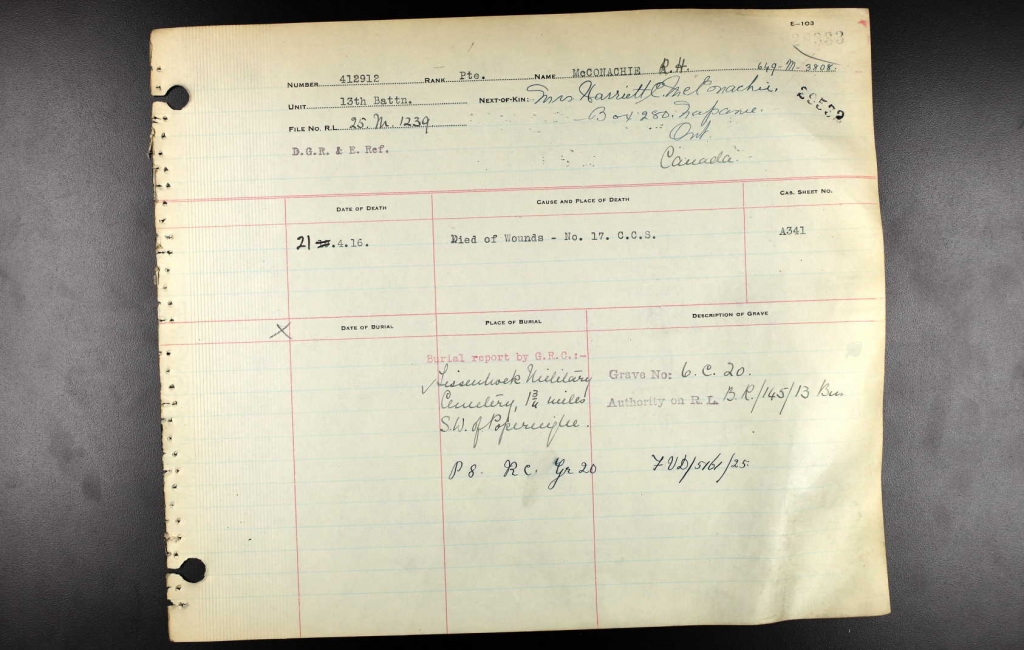 E-103
NUMBER 412912 RANK Pte. NAME McCONACHIE R.H. 649-M-3808.
UNIT 13th Battn. NEXT-OF-KIN:- Mrs Harriett C. McConachie.
29532
FILE NO. R.L. 25. M. 1239 Box 280. Napanee.
Ont.
D.G.R. & E. Ref.
Canada
DATE OF DEATH CAUSE AND PLACE OF DEATH CAS. SHEET NO.
21 .4.16. Died of Wounds - No. 17. C.C.S. A341
DATE OF BURIAL PLACE OF BURIAL DESCRIPTION OF GRAVE
Burial report by G.R.C.:-
Lissenhoek Military Grave No: 6. C. 20.
Cemetery, 1 3/4 miles Authority on R.L. B.R./145/13 Bns
S.W. of Poperinghe.
P 8. R C. Gr 20